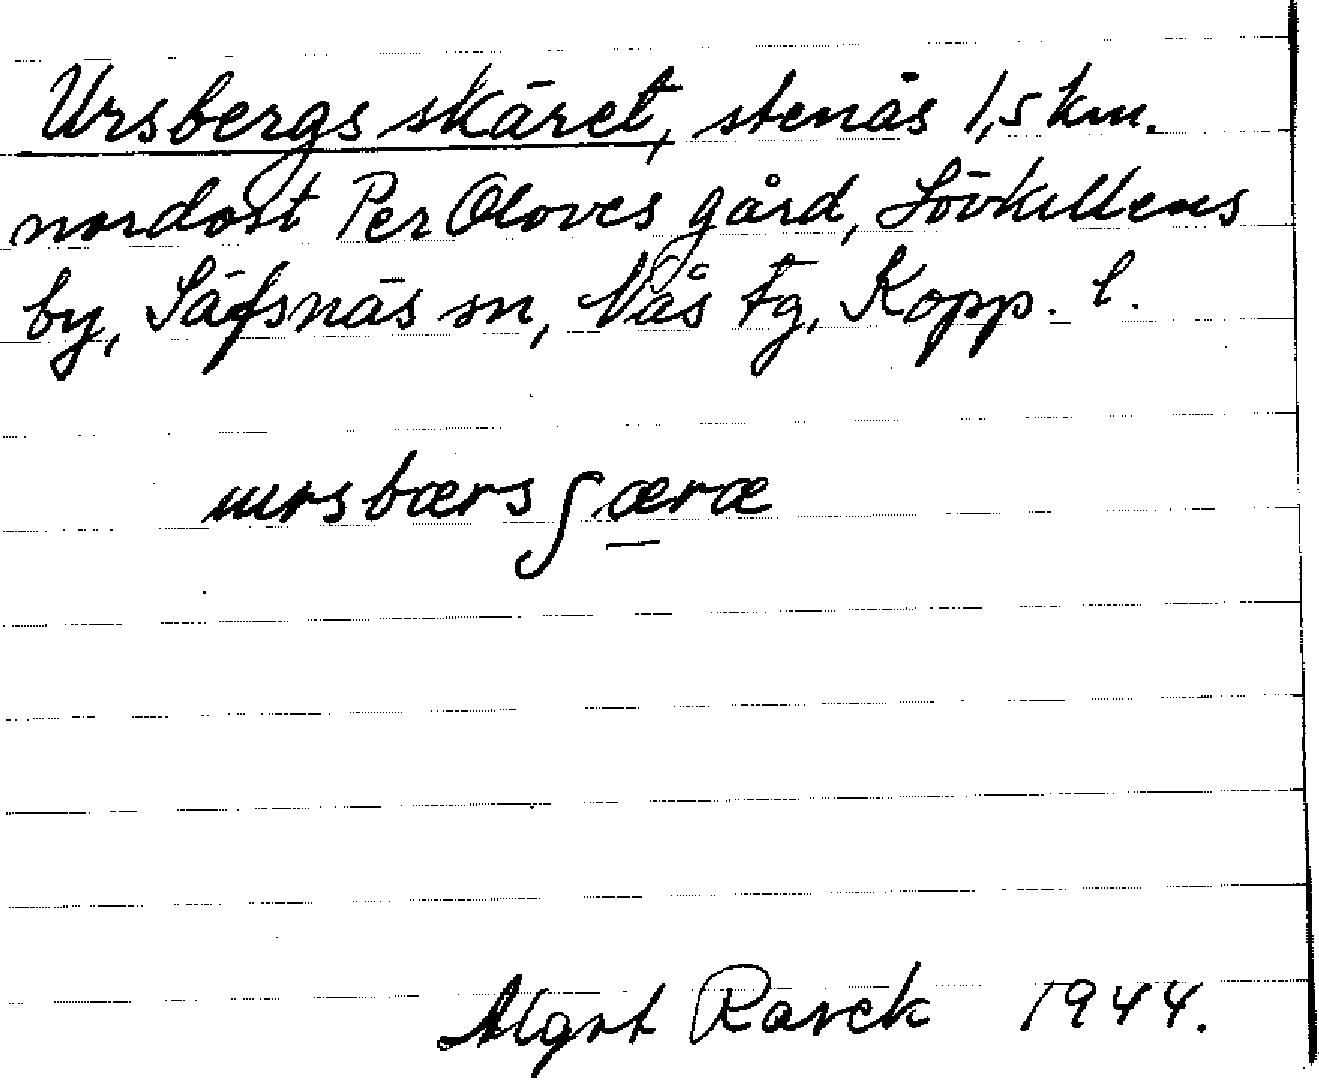 Ursbergsskäret, stenås 1,5 km.
nordost Per Oloves gård, Lövkullens
by, Säfsnäs sn, Nås tg, Kopp. l.
ursbærsʃæræ
Algot Rarck 1944.